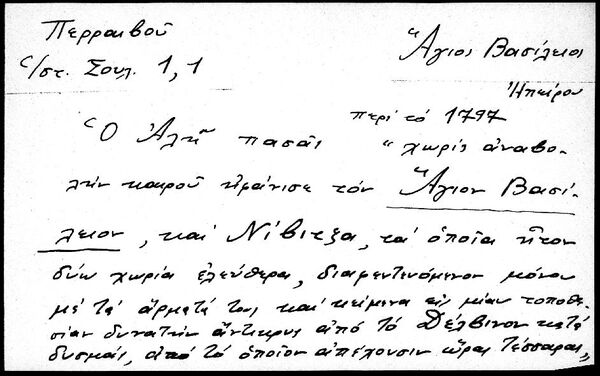 Περραιβοῦ
Ἅγιος Βασίλειος
Ἱστ. Σουλ. 1,1
Ἠπείρου
περί τό 1797
Ὁ Ἀλῆ πασᾶς "χωρίς ἀναβο-
λήν καιροῦ ἠφάνισε τόν Ἅγιον Βασί-
λειον, καί Νίβιτζα, τά ὁποῖα ἦτον
δύω χωρία ἐλεύθερα, διαφεντευόμενα μόνον
μέ τά ἄρματά τους καί κείμενα εἰς μίαν τοποθε-
σίαν δυνατήν ἄντικρυς ἀπό τό Δέλβινον κατά
δυσμάς, ἀπό τό ὁποῖον ἀπέχουσιν ὥρας τέσσαρας,